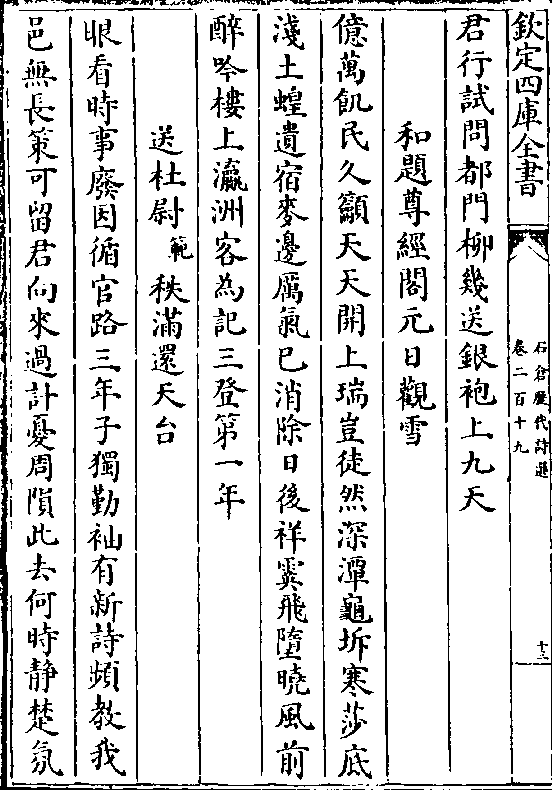 欽定四庫全書
石倉歷代詩選
卷二百十九
十二
君行試問都門柳幾送銀袍上九天
和題尊經閣元日觀雪
億萬飢民久籲天天開上瑞豈徒然深潭龜坼寒莎底
淺土蝗遺宿麥邊厲氣已消除日後祥霙飛墮曉風前
醉吟樓上瀛洲客為記三登第一年
送杜尉範秩滿還天台
眼看時事廢因循官路三年子獨勤袖有新詩頻教我
邑無長策可留君向來過計憂周隕此去何時靜楚氛